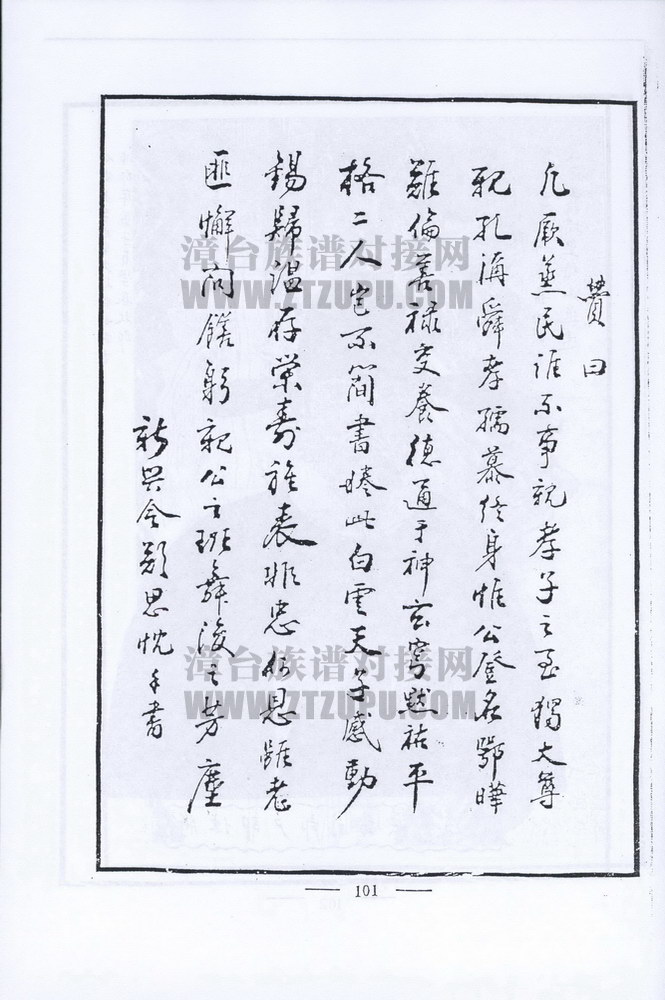 贊曰
凡厥蒸民誰不事親孝子之至獨大尊
親孔滴舜孝孺慕終身惟公登名鄂曄
難倫善祿交養德通于神玄穹默祐平
格二人豈不簡書惓此白雲天子感動
錫歸温存榮壽旌表非忠何恩雖老
匪懈問饍躬親公之班舞後之芳塵
新興令鄭思忱手書
漳台族谱对接网
WWW.ZTZUPU.COM
漳台族谱对接网
WWW.ZTZUPU.COM
101